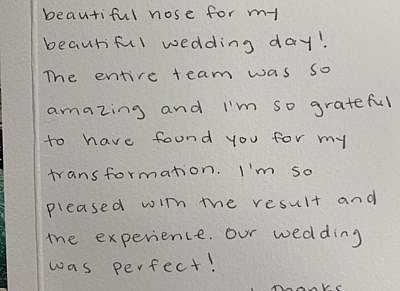 beautiful nose for my
beautiful wedding day!
The entire team was so
amazing and I'm so grateful
to have found you for my
transformation. I'm so
pleased with the result and
the experience. Our wedding
was perfect!
Thanks